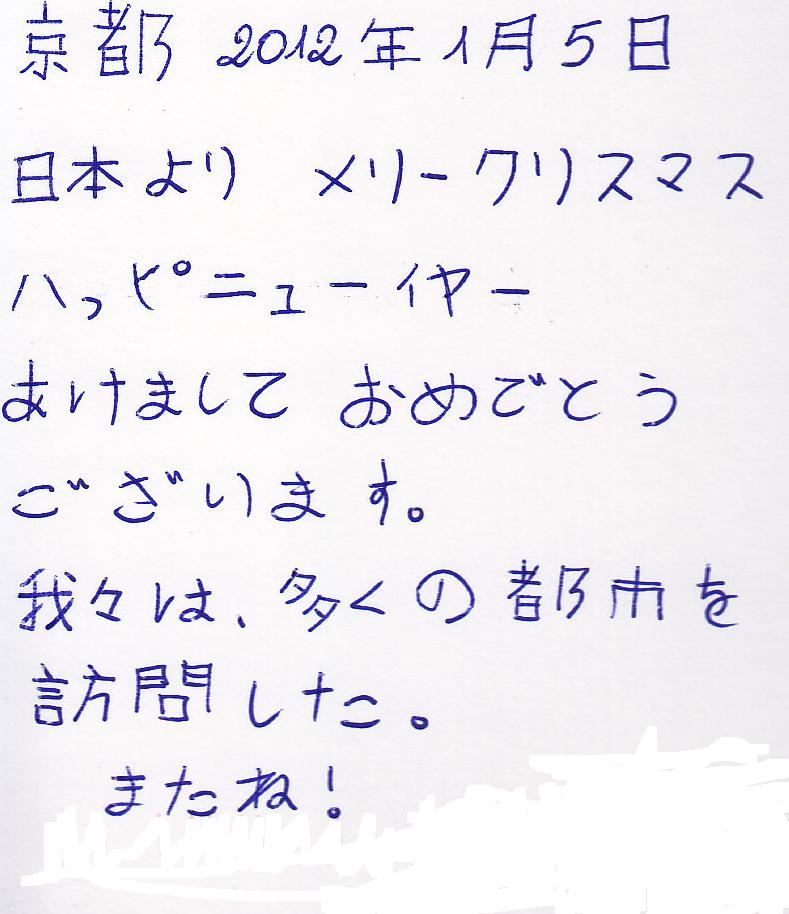 京都 2012年1月5日
日本より メリークリスマス
ハッピニューイヤー
あけまして おめでとう
ございます。
我々は、多くの都市を
訪問した。
またね！